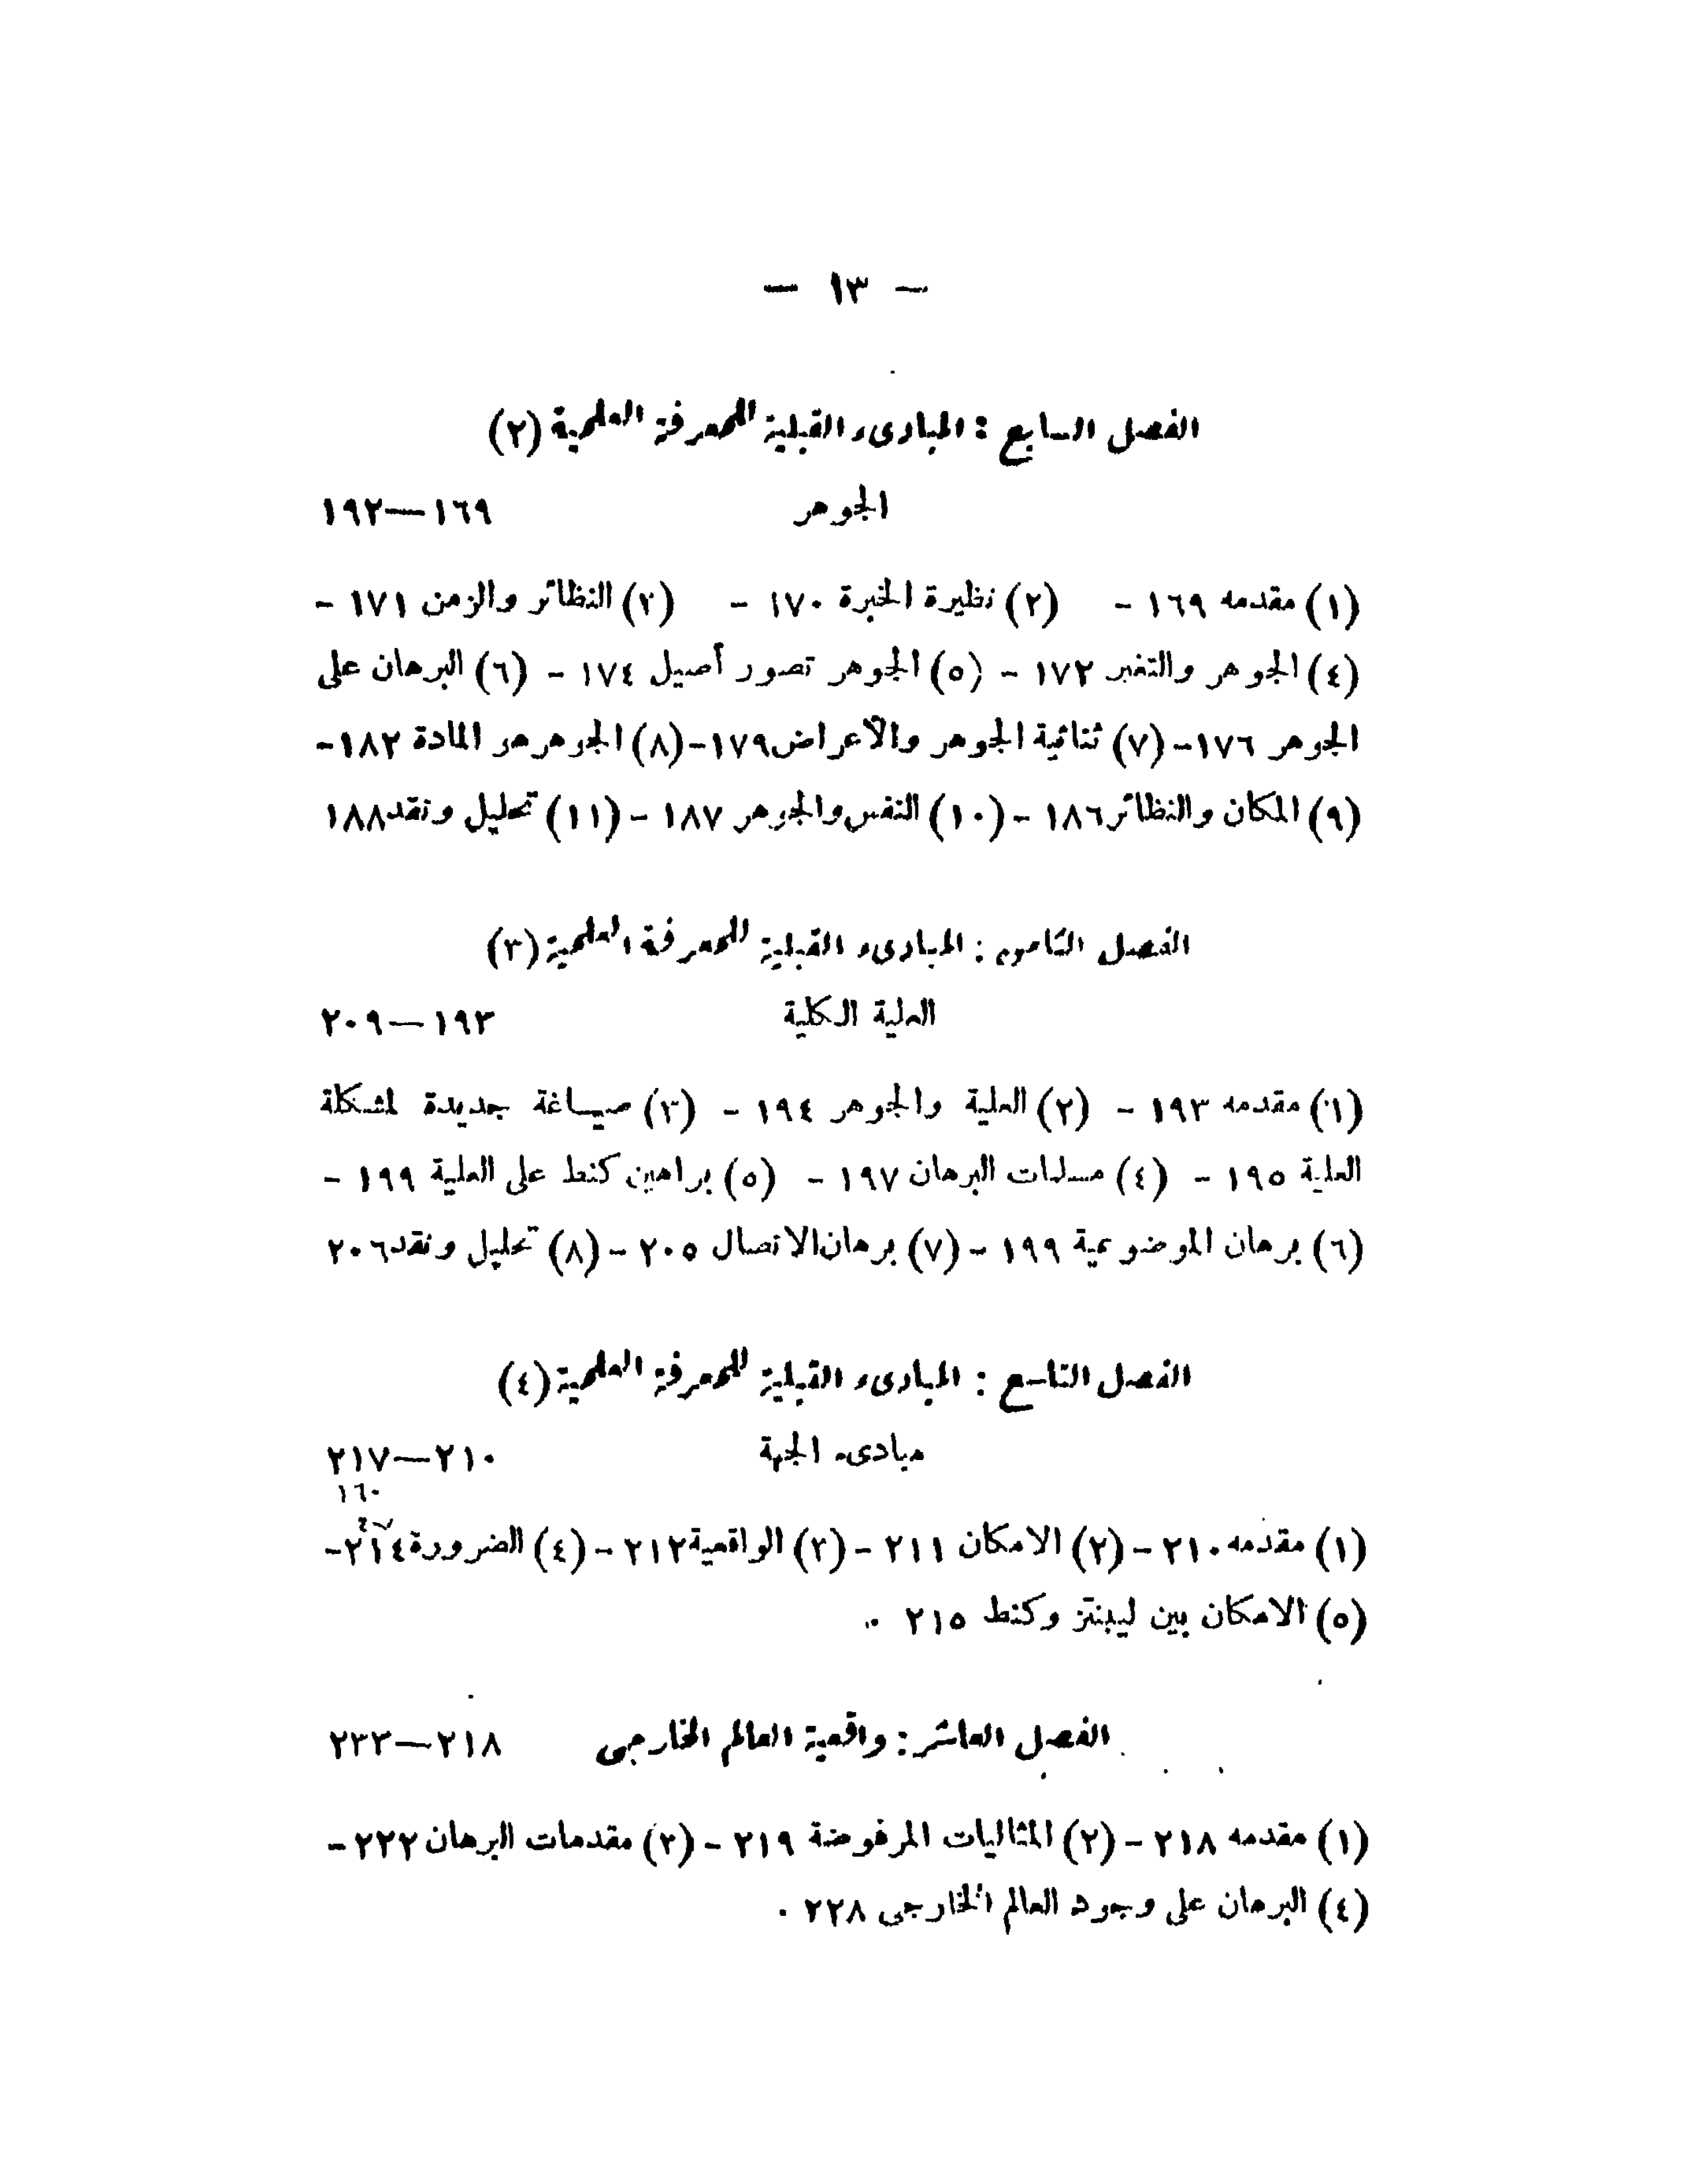 — ١٣ —
الفصل السابع : المبادىء القبلية للمعرفة العلمية (٢)
الجوهر ١٦٩—١٩٢
(١) مقدمه ١٦٩ - (٢) نظيرة الخبرة ١٧٠ - (٣) النظائر والزمن ١٧١ -
(٤) الجوهر والتغير ١٧٢ - (٥) الجوهر تصور أصيل ١٧٤ - (٦) البرهان على
الجوهر ١٧٦- (٧) ثنائية الجوهر والأعراض ١٧٩- (٨) الجوهر هو المادة ١٨٢-
(٩) المكان والنظائر ١٨٦ - (١٠) النفس والجوهر ١٨٧ - (١١) تحليل ونقد ١٨٨
الفصل الثامن : المبادىء القبلية للمعرفة العلمية (٣)
العلية الكلية ١٩٣—٢٠٩
(١) مقدمه ١٩٣ - (٢) العلية والجوهر ١٩٤ - (٣) صياغة جديدة لمشكلة
العلية ١٩٥ - (٤) مسلمات البرهان ١٩٧ - (٥) براهين كنط على العلية ١٩٩ -
(٦) برهان الموضوعية ١٩٩ - (٧) برهان الاتصال ٢٠٥ - (٨) تحليل ونقد ٢٠٦
الفصل التاسع : المبادىء القبلية للمعرفة العلمية (٤)
مبادىء الجهة ٢١٠—٢١٧
١٦٠
(١) مقدمه ٢١٠ - (٢) الامكان ٢١١ - (٣) الواقعية ٢١٢ - (٤) الضرورة ٢١٤-
(٥) الامكان بين ليبنتز وكنط ٢١٥ .
الفصل العاشر : واقعية العالم الخارجى ٢١٨—٢٣٣
(١) مقدمه ٢١٨ - (٢) المثاليات المرفوضة ٢١٩ - (٣) مقدمات البرهان ٢٢٢ -
(٤) البرهان على وجود العالم الخارجى ٢٢٨ .